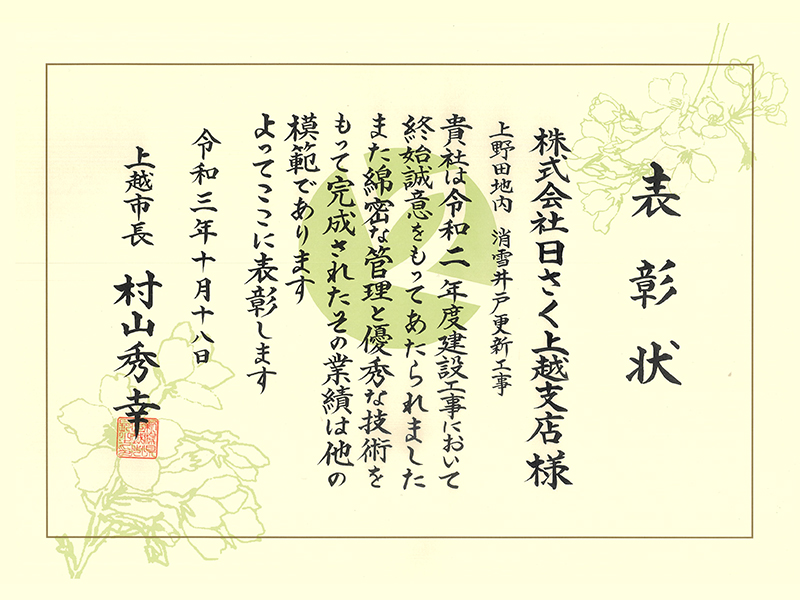 表彰状
株式会社日さく上越支店様
上野田地内 消雪井戸更新工事
貴社は令和二年度建設工事において
終始誠意をもってあたられました
また綿密な管理と優秀な技術を
もって完成されたその業績は他の
模範であります
よってここに表彰します
令和三年十月十八日
上越市長 村山秀幸